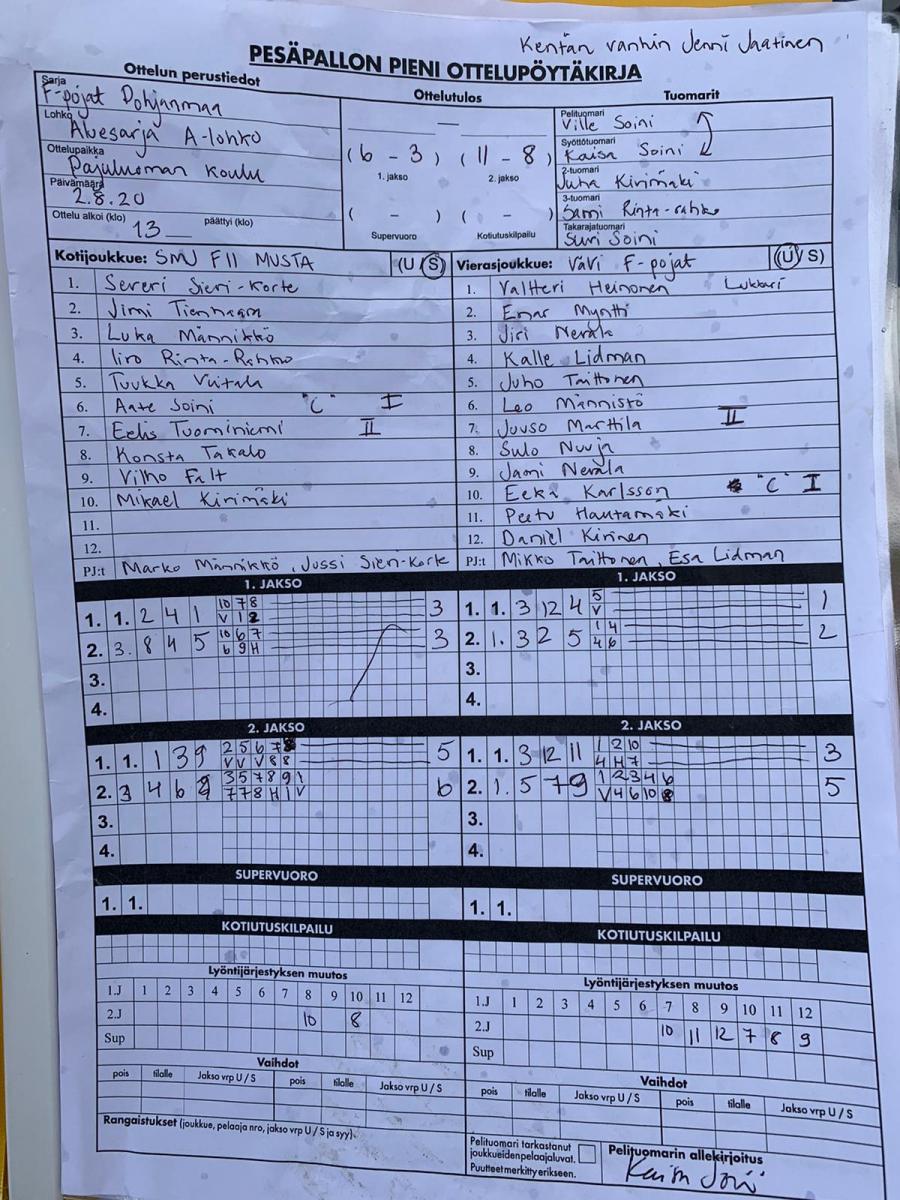 Kentän vanhin Jenni Jaatinen
PESÄPALLON PIENI OTTELUPÖYTÄKIRJA
Ottelun perustiedot
Sarja F-pojat Pohjanmaa
Lohko Aluesarja A-lohko
Ottelupaikka Pajuluoman koulu
Päivämäärä 2.8.20
Ottelu alkoi (klo) 13 päättyi (klo)
Ottelutulos
—
(6 - 3) (11 - 8)
1. jakso 2. jakso
( - ) ( - )
Supervuoro Kotiutuskilpailu
Tuomarit
Pelituomari Ville Soini
Syöttötuomari Kaisa Soini
2-tuomari Juha Kirimäki
3-tuomari Sami Rinta-rahko
Takarajatuomari Suvi Soini
Kotijoukkue: SMJ F11 MUSTA (U/S)
1. Severi Sieri-Korte
2. Jimi Tienhaara
3. Luka Männikkö
4. Iiro Rinta-Rahko
5. Tuukka Viitala
6. Aate Soini "C" I
7. Eelis Tuominiemi II
8. Konsta Takalo
9. Vilho Falt
10. Mikael Kirimäki
11.
12.
PJ:t Marko Männikkö, Jussi Sieri-Korte
Vierasjoukkue: ViVi F-pojat (U/S)
1. Valtteri Heinonen Lukkari
2. Einar Myntti
3. Jiri Nevala
4. Kalle Lidman
5. Juho Taittonen
6. Leo Männistö
7. Juuso Marttila II
8. Sulo Nuuja
9. Jami Nevala
10. Eeka Karlsson "C" I
11. Peetu Hautamäki
12. Daniel Kirinen
PJ:t Mikko Taittonen, Esa Lidman
1. JAKSO
1. 1. 2 4 1 10 7 8 3
V 1 2
2. 3. 8 4 5 10 6 7 3
6 9 H
3.
4.
1. JAKSO
1. 1. 3 12 4 5 1
V
2. 1. 3 2 5 1 4 2
4 6
3.
4.
2. JAKSO
1. 1. 1 3 9 2 5 6 7 8 5
V V V 8 8
2. 3 4 6 9 3 5 7 8 9 1 6
7 7 8 H 1 V
3.
4.
2. JAKSO
1. 1. 3 12 11 1 2 10 3
4 H 7
2. 1. 5 7 9 1 2 3 4 6 5
V 4 6 10 8
3.
4.
SUPERVUORO
1. 1.
SUPERVUORO
1. 1.
KOTIUTUSKILPAILU
KOTIUTUSKILPAILU
Lyöntijärjestyksen muutos
1.J 1 2 3 4 5 6 7 8 9 10 11 12
2.J 10 8
Sup
Lyöntijärjestyksen muutos
1.J 1 2 3 4 5 6 7 8 9 10 11 12
2.J 10 11 12 7 8 9
Sup
Vaihdot
pois tilalle Jakso vrp U / S pois tilalle Jakso vrp U / S
Vaihdot
pois tilalle Jakso vrp U / S pois tilalle Jakso vrp U / S
Rangaistukset (joukkue, pelaaja nro, jakso vrp U / S ja syy).
Pelituomari tarkastanut
joukkueiden pelaajaluvat.
Puutteet merkitty erikseen.
Pelituomarin allekirjoitus
Kaisa Soini